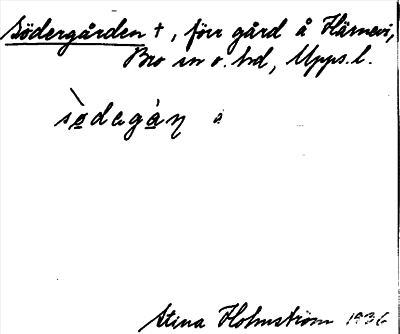 Södergården †, förr gård å Härnevi,
Bro sn o. hd, Upps. l.
sò̀degàn̥ å
Stina Holmström 1936